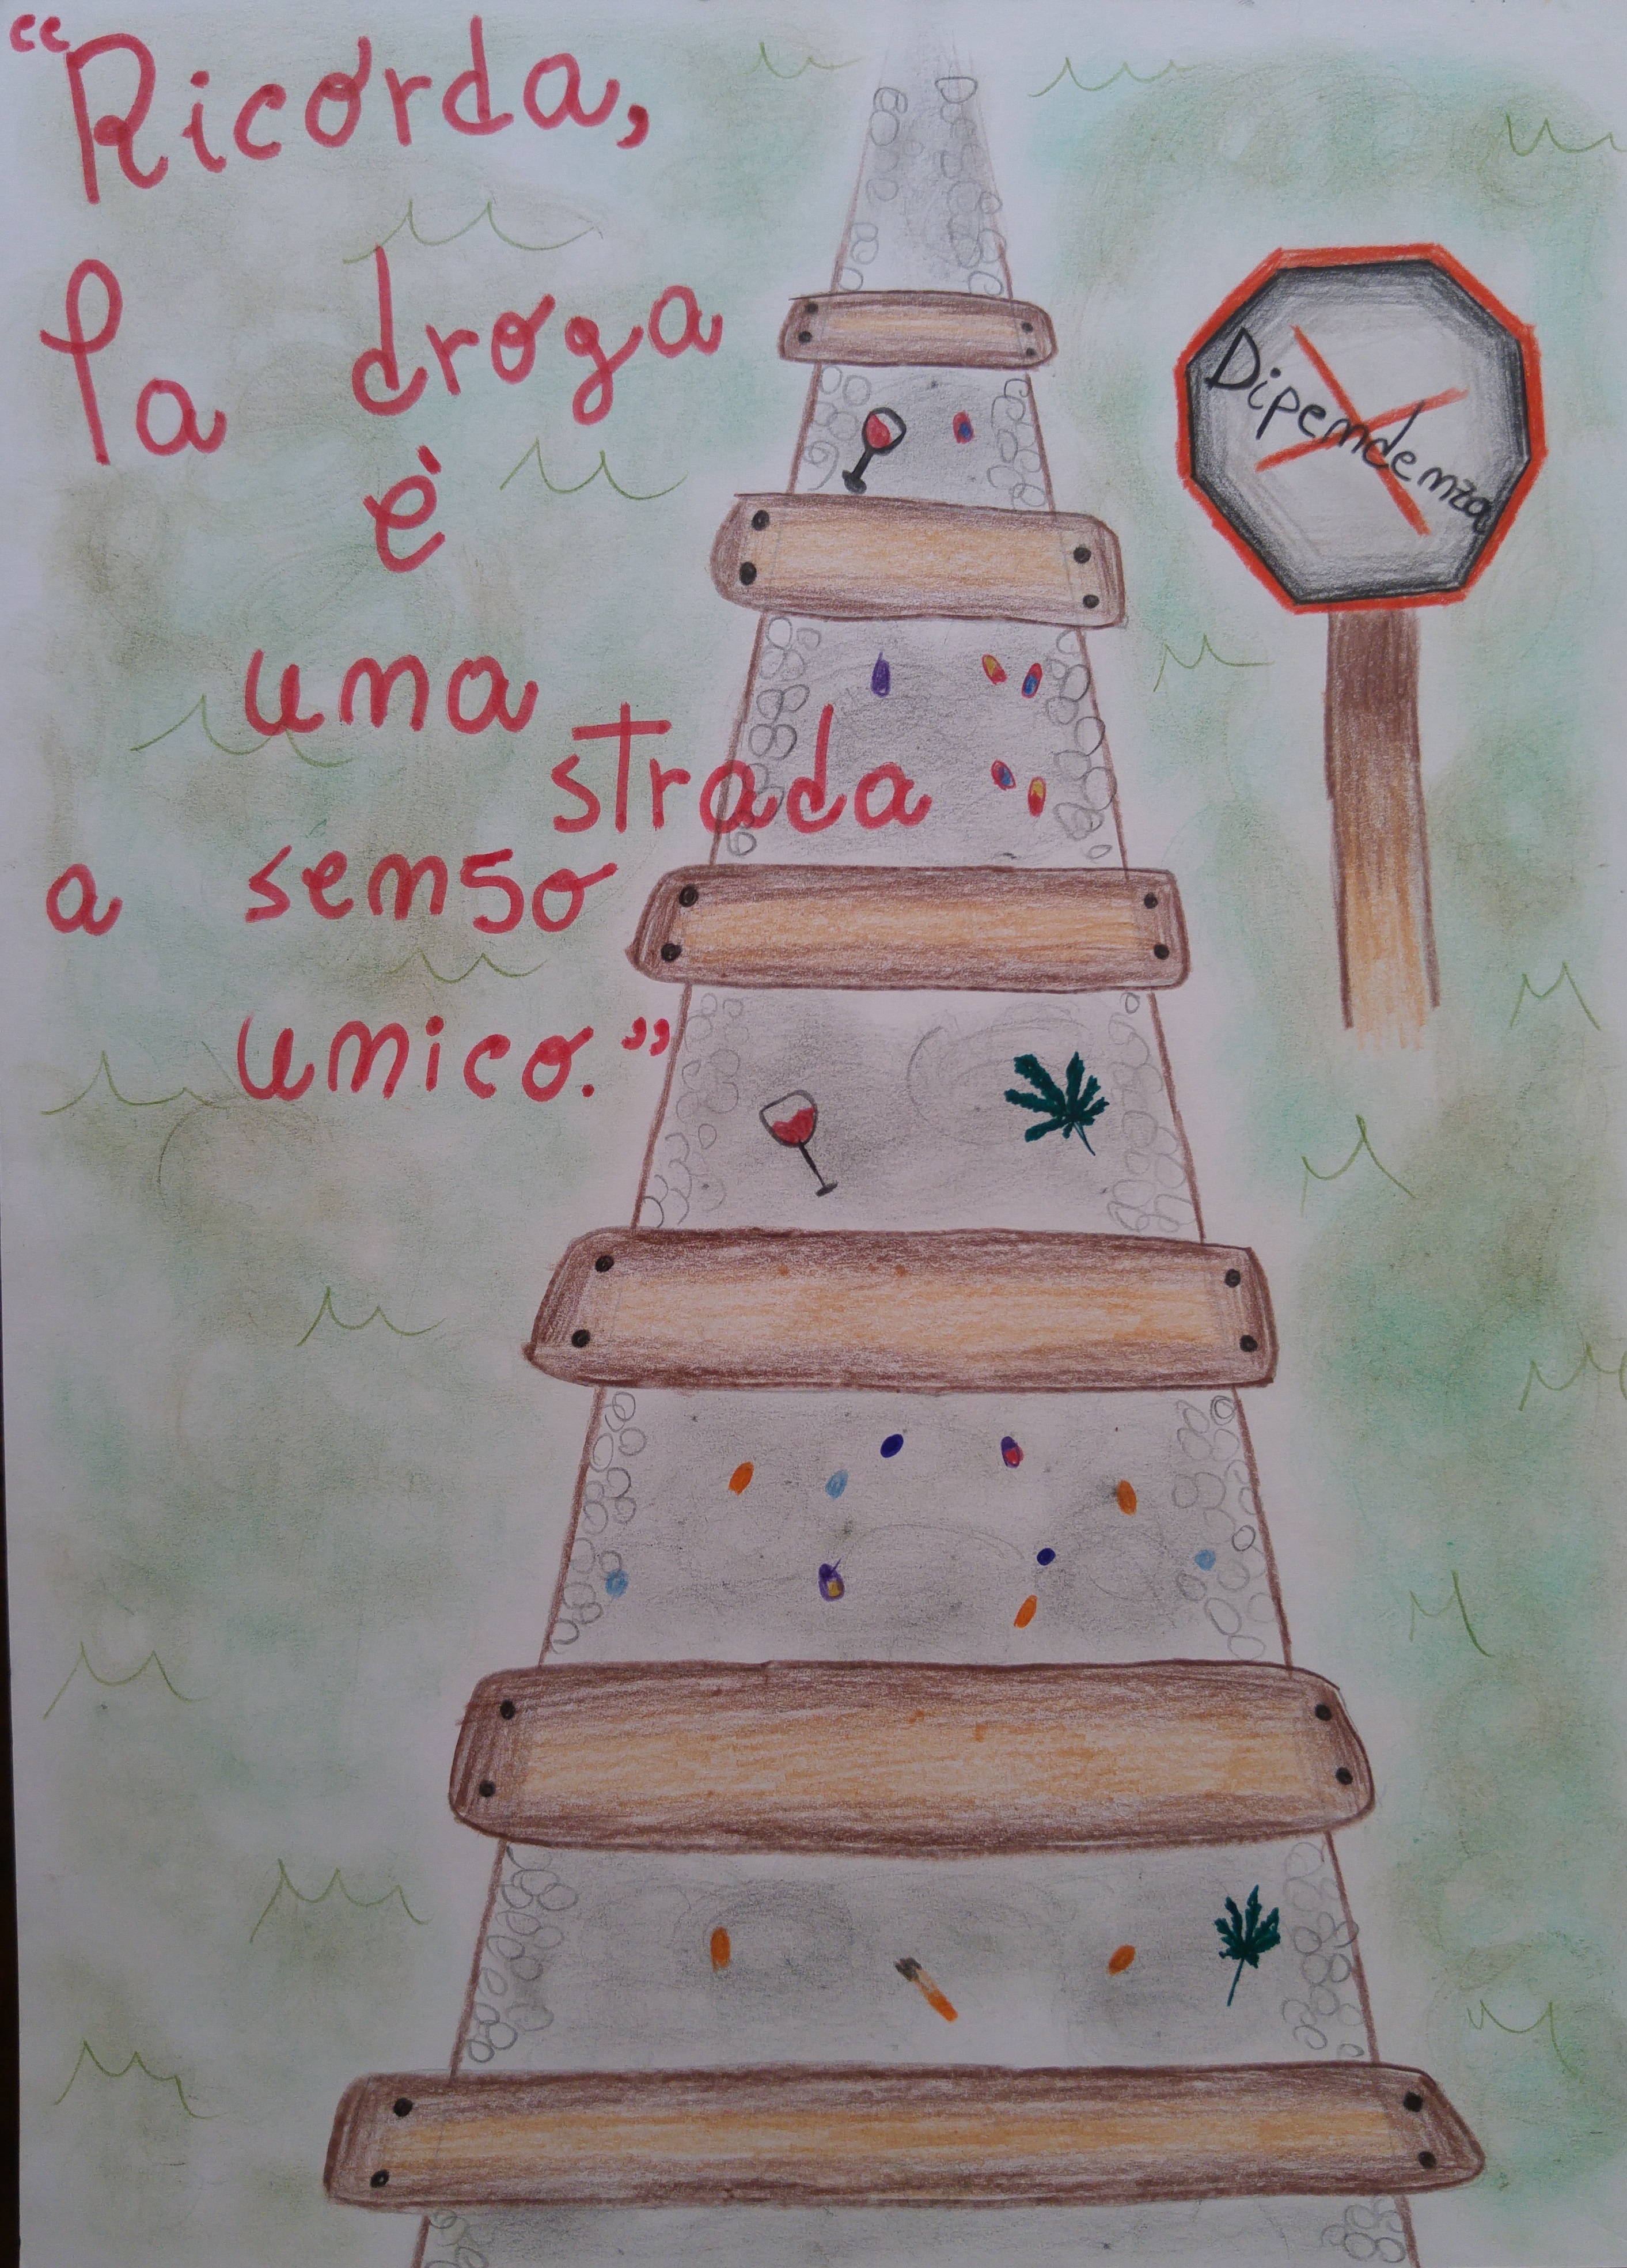 “Ricorda,
la droga
è
una
strada
a senso
unico.”
Dipendenza